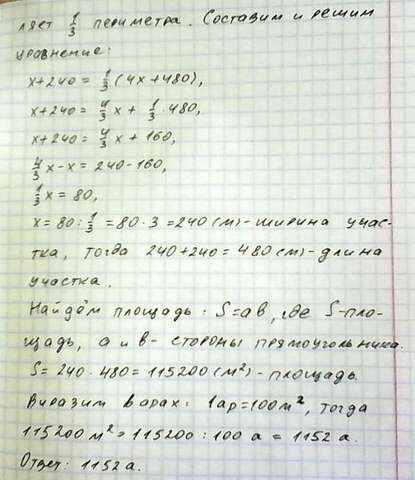 ляет 1/3 периметра. Составим и решим
уравнение:
x+240 = 1/3 (4x+480),
x+240 = 4/3 x + 1/3 · 480,
x+240 = 4/3 x + 160,
4/3 x - x = 240-160,
1/3 x = 80,
x = 80 : 1/3 = 80 · 3 = 240 (м) - ширина учас-
тка, тогда 240+240 = 480 (м) - длина
участка.
Найдём площадь: S=ab, где S-пло-
щадь, a и b - стороны прямоугольника.
S = 240 · 480 = 115200 (м²) - площадь.
Выразим в арах: 1ар=100м², тогда
115200 м² = 115200 : 100 а = 1152 а.
Ответ: 1152 а.